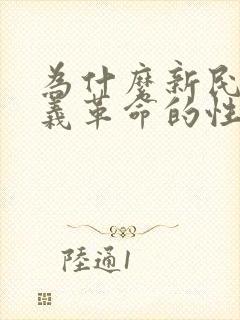 為什麼新民
義革命的性
陸通1